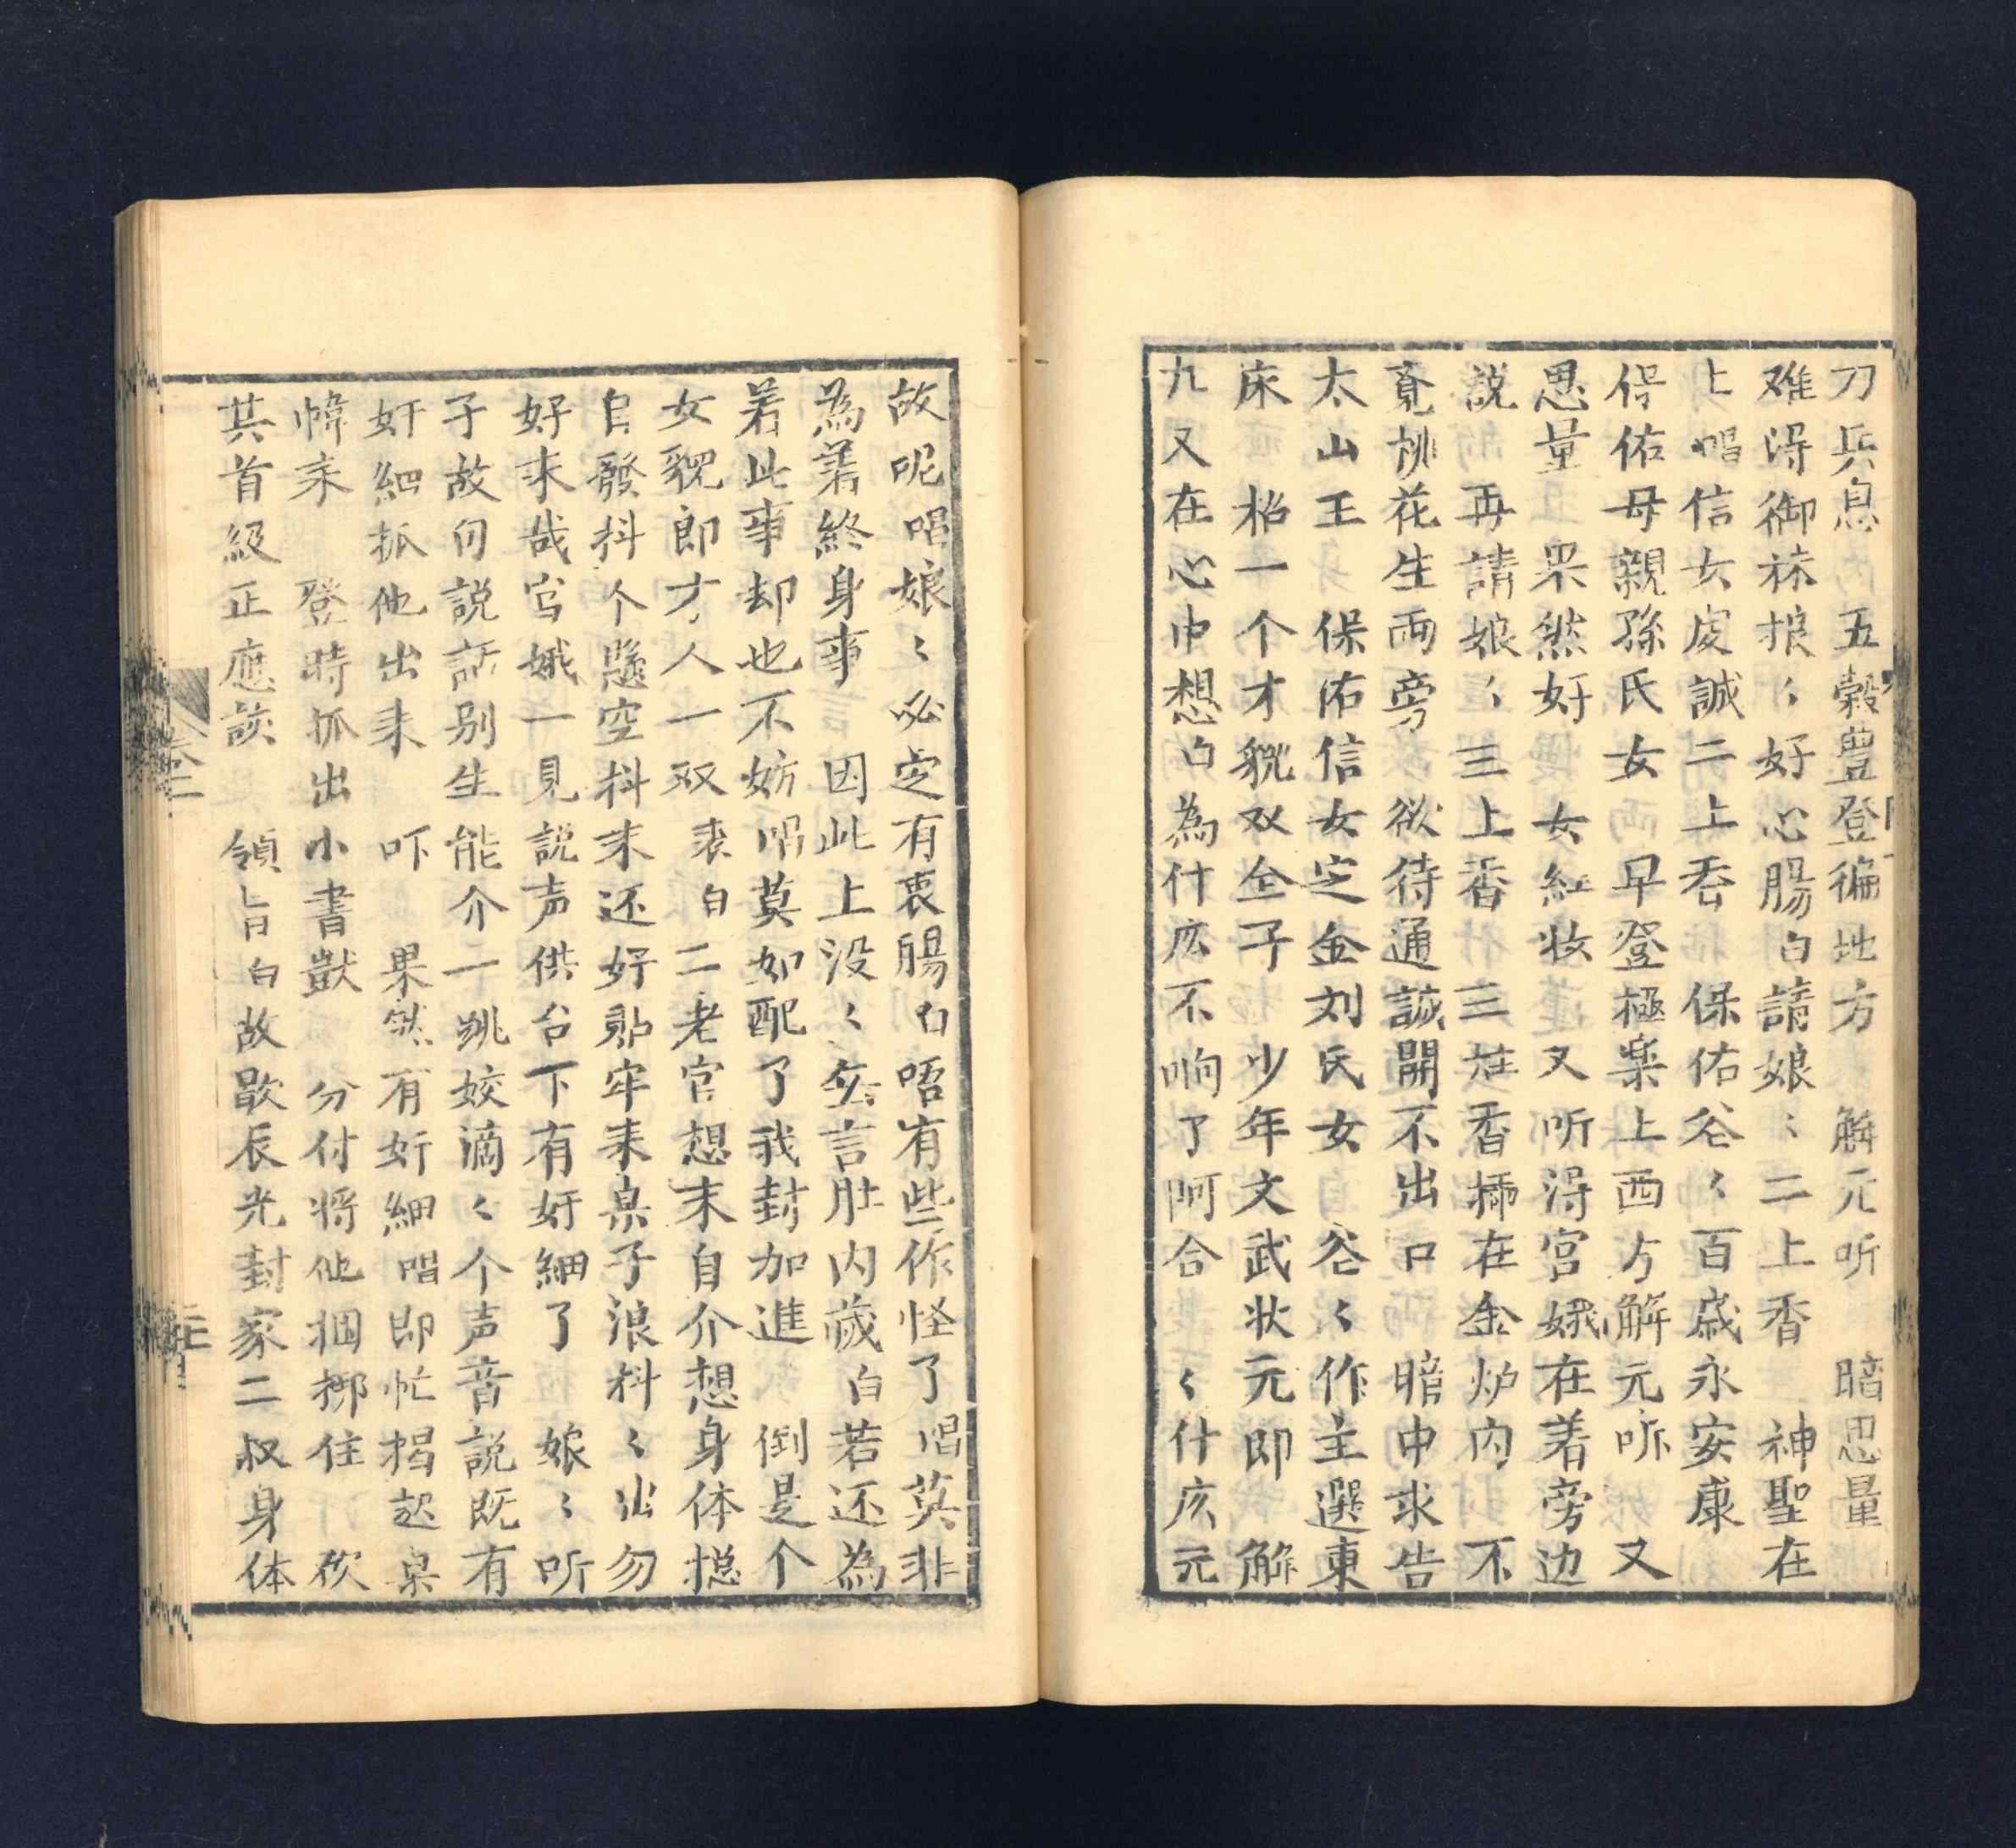 刀兵息　五穀豊登徧地方　解元听　暗思量
难得御妹娘〻好心腸白請娘〻二上香　神聖在
上唱信女虔誠二上香　保佑爷〻百歳永安康
保佑母親孫氏女　早登極楽上西方解元听　又
思量　果然好　女紅妆　又听得宫娥在着旁边
説　再請娘〻三上香　三炷香揷在金炉内　不
覔桃花生両旁　欲待通誠開不出口　暗中求告
太山王　保佑信女定金刘氏女　爷〻作主選東
床　招一个才貌双全子　少年文武状元郎　解
九又在心中想白為什庅不响了阿合〻什庅元
故呢唱娘〻必定有衷腸白唔有些作怪了唱莫非
為着終身事　因此上没〻無言肚内蔵白若还為
着此事却也不妨唱莫如配了我封加進　倒是个
女貌郎才人一双　表白二老官想末自介想身体捴
自發抖个懸空抖末还好貼牢来桌子浪抖〻出勿
好来哉宫娥一見説声供台下有奸細了　娘〻听
子故句説話别生能介一跳姣滴〻个声音説既有
奸細抓他出来　吓　果然有奸細唱即忙揭起桌
幃来　登時抓出小書獃　分付将他捆挷住　砍
其首級正應該　領旨白故歇辰光封家二叔身体